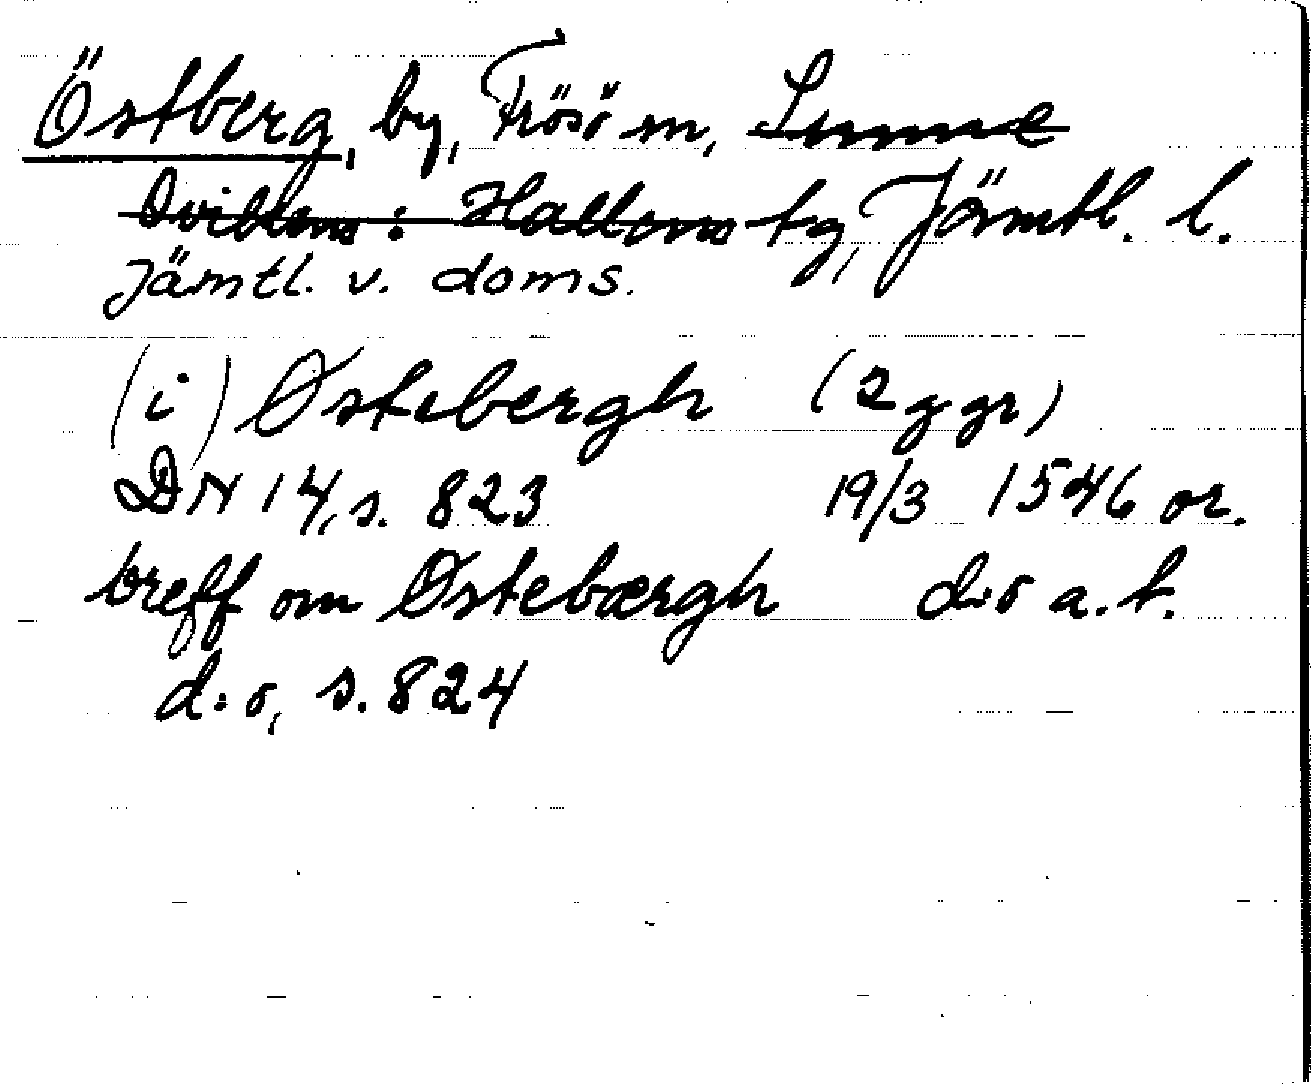 Östberg, by, Frösö sn, Sunne
Ovikens: Hallens tg, Jämtl. l.
Jämtl. v. doms.
(i) Østebergh (2 ggr)
DN 14, s. 823 19/3 1546 or.
breff om Østebærgh d:o a. st.
d:o, s. 824